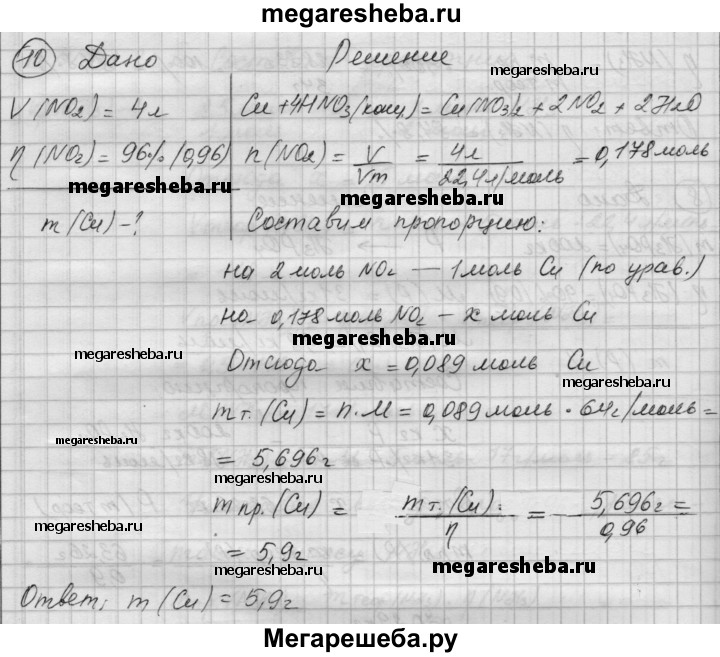 megaresheba.ru
10 Дано Решение
megaresheba.ru
V(NO2) = 4л Cu + 4HNO3(конц) = Cu(NO3)2 + 2NO2 + 2H2O
η(NO2) = 96% (0,96) n(NO2) = V/Vm = 4л/22,4л/моль = 0,178 моль
megaresheba.ru megaresheba.ru
m(Cu) - ? Составим пропорцию:
на 2 моль NO2 — 1 моль Cu (по урав.)
на 0,178 моль NO2 — x моль Cu
megaresheba.ru
megaresheba.ru
Отсюда x = 0,089 моль Cu
megaresheba.ru
m т. (Cu) = n · M = 0,089 моль · 64г/моль =
megaresheba.ru
= 5,696г
megaresheba.ru
m пр. (Cu) = m т. (Cu): / η = 5,696г / 0,96 =
megaresheba.ru
= 5,9г
megaresheba.ru
megaresheba.ru
Ответ: m(Cu) = 5,9г
Мегарешеба.ру